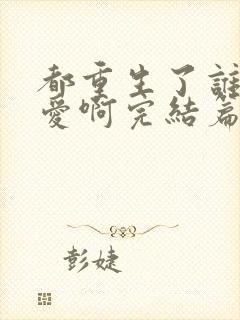 都重生了誰
愛啊完結篇
彭婕